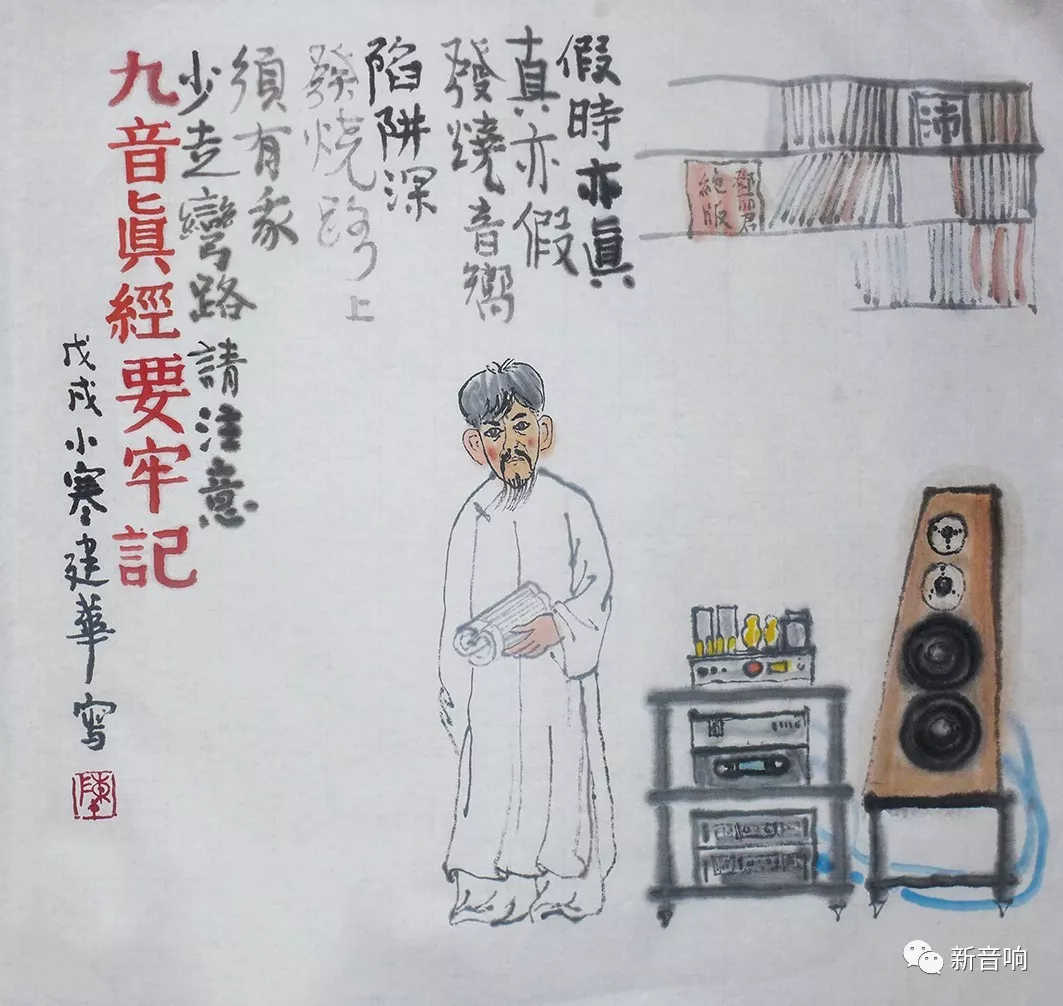 假時亦眞
真亦假
發燒音響
陷阱深
發燒路上
須有我
少走彎路請注意
九音眞經要牢記
戊戌小寒建華寫
鄧丽君
絶版
新音响